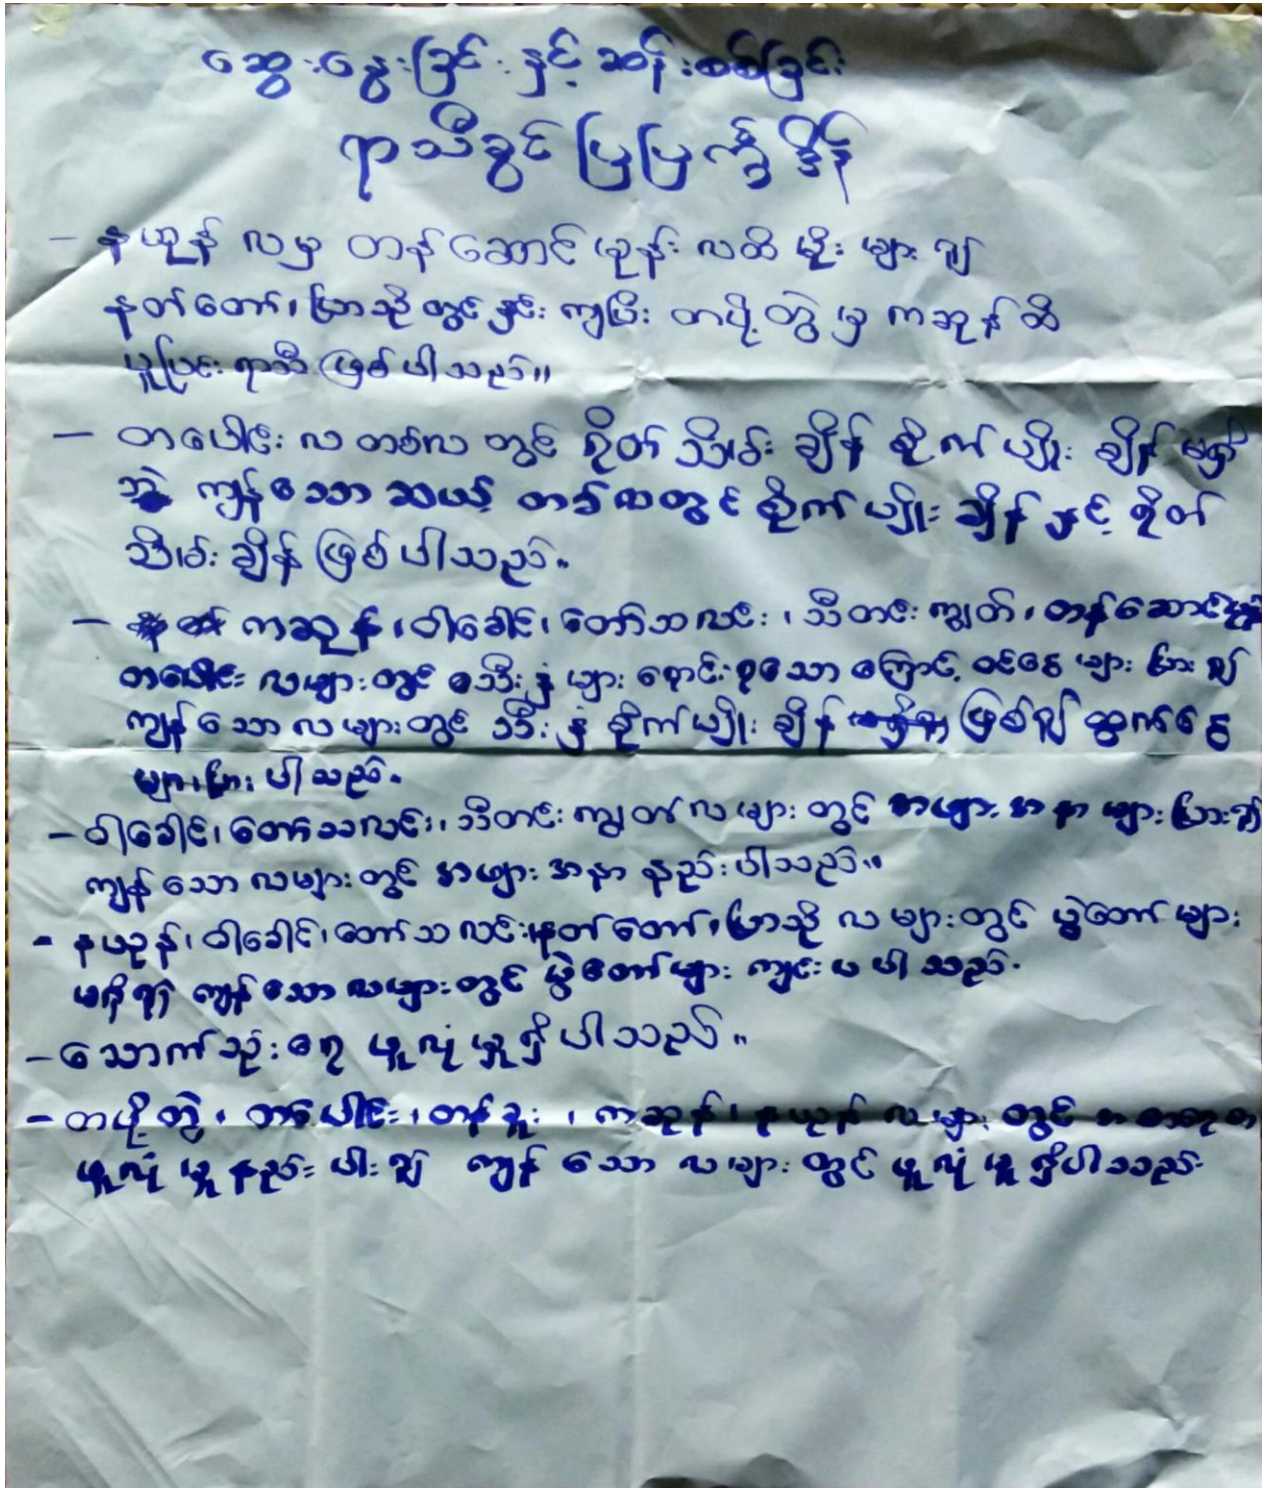 ဆွေးနွေးခြင်း နှင့် ဆန်းစစ်ခြင်း
ရာသီခွင် ပြပြက္ခဒိန်
- နယုန် လမှ တန်ဆောင်မုန်း လထိ မိုး များ၍
နတ်တော်၊ ပြာသို တွင် နှင်း ကျပြီး တပို့တွဲ မှ ကဆုန် ထိ
ပူပြင်း ရာသီ ဖြစ်ပါသည်။
- တပေါင်း လ တစ်လ တွင် ရိတ် သိမ်း ချိန် စိုက် ပျိုး ချိန် မရှိ
ဘဲ ကျန်သော ဆယ့် တစ်လတွင် စိုက် ပျိုး ချိန် နှင့် ရိတ်
သိမ်း ချိန် ဖြစ်ပါသည်။
- ကဆုန်၊ ဝါခေါင်၊ တော်သလင်း၊ သီတင်းကျွတ်၊ တန်ဆောင်မုန်း
တပေါင်း လများ တွင် သီးနှံ များ ရောင်းရသော ကြောင့် ဝင်ငွေ များ ပြား၍
ကျန်သော လများတွင် သီးနှံ စိုက်ပျိုး ချိန် ဖြစ်၍ ထွက်ငွေ
များပြား ပါသည်။
- ဝါခေါင်၊ တော်သလင်း၊ သီတင်းကျွတ် လများ တွင် အဖျား အနာ များ ပြား၍
ကျန်သော လများ တွင် အဖျား အနာ နည်းပါသည်။
- နယုန်၊ ဝါခေါင်၊ တော်သလင်း၊ နတ်တော်၊ ပြာသို လများတွင် ပွဲတော်များ
မရှိ၍ ကျန်သော လများတွင် ပွဲတော်များ ကျင်းပပါသည်။
- သောက်သုံး ရေ ဖူလုံ မှု ရှိပါသည်။
- တပို့တွဲ၊ တပေါင်း၊ တန်ခူး၊ ကဆုန်၊ နယုန် လများ တွင်
ဖူလုံ မှု နည်း ပါး၍ ကျန်သော လများ တွင် ဖူလုံ မှု ရှိပါသည်